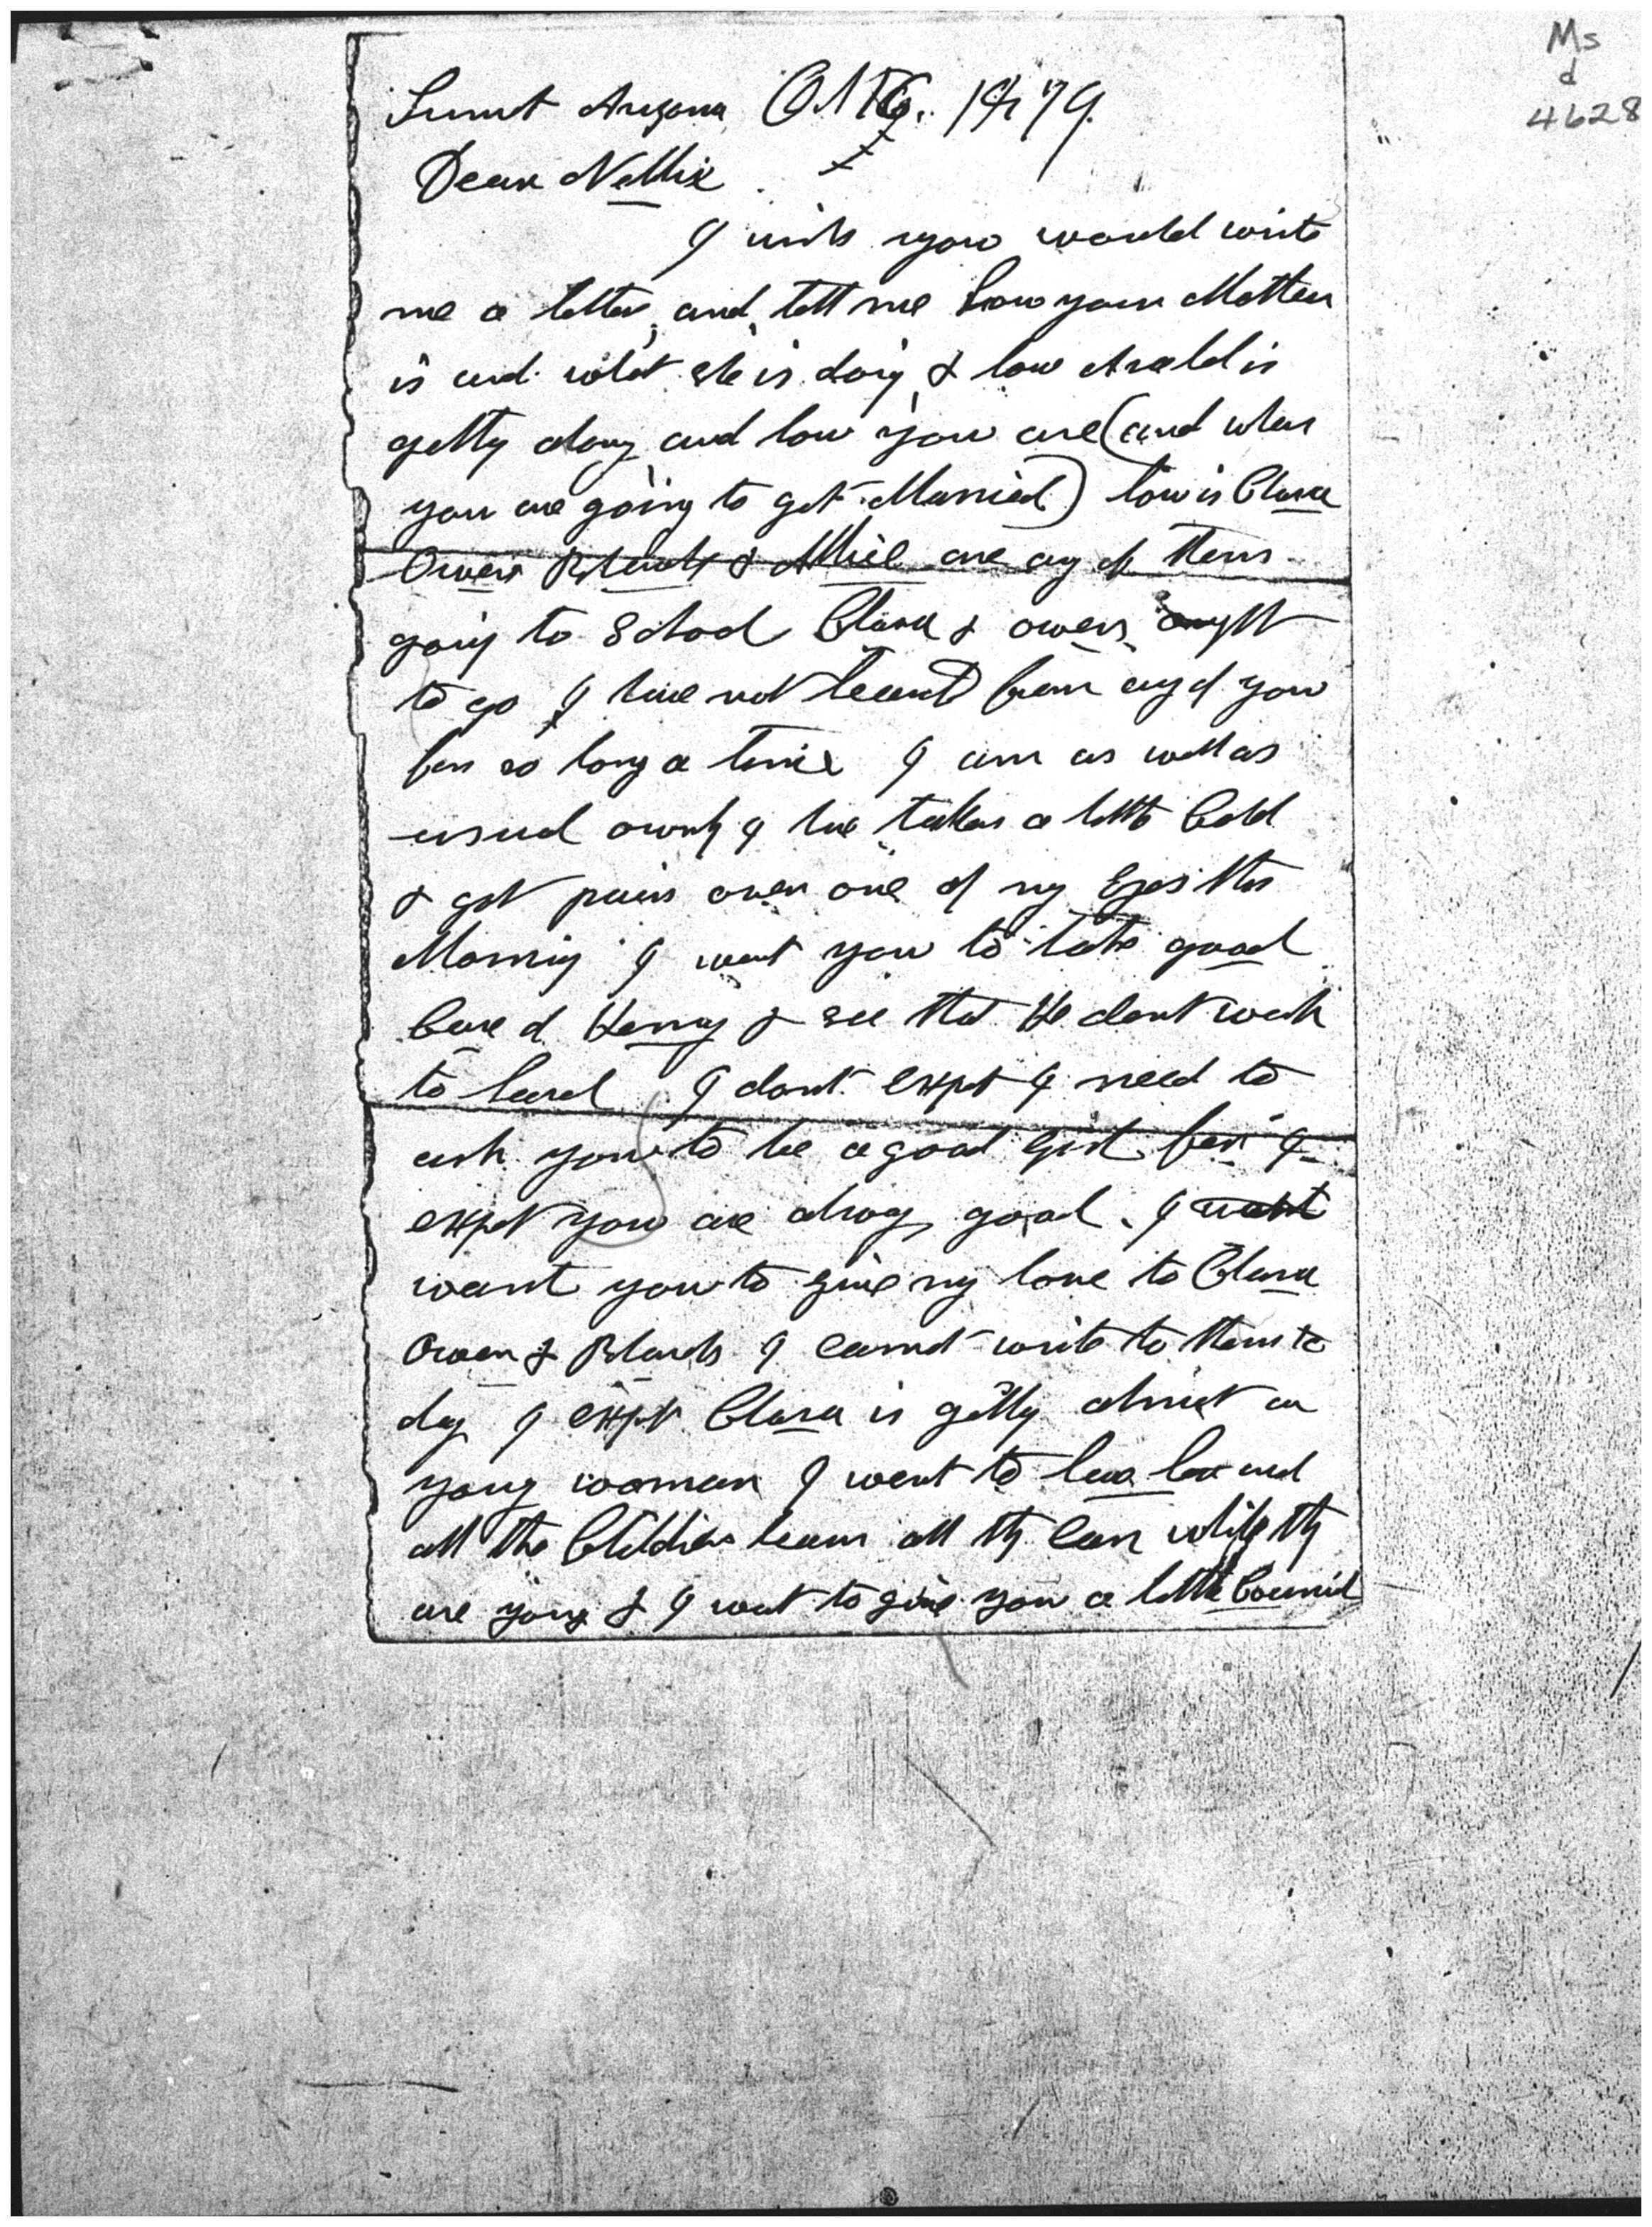 Ms
d
4628
Sunset Arizona Oct 16. 1879.
Dear Nellie
I wish you would write
me a letter, and, tell me how your Mother
is and what she is doing & how Asahel is
getting along and how you are (and when
you are going to get Married) how is Clara
Owen Blanch & Alice are any of them
going to School Clara & owen ought
to go I have not heard from any of you
for so long a time I am as well as
usual ownly I have taken a little Cold
& got pain over one of my Eyes this
Morning I want you to take good
Care of Henry & see that He dont work
to hard I dont expet I need to
ask you to be a good girl for I
expet you are always good. I want
want you to give my love to Clara
Owen & Blanch I cannot write to them to
day I expt Clara is getting almost a
young woman I want to have her and
all the Children learn all thy Can while thy
are young & I want to give you a little Council